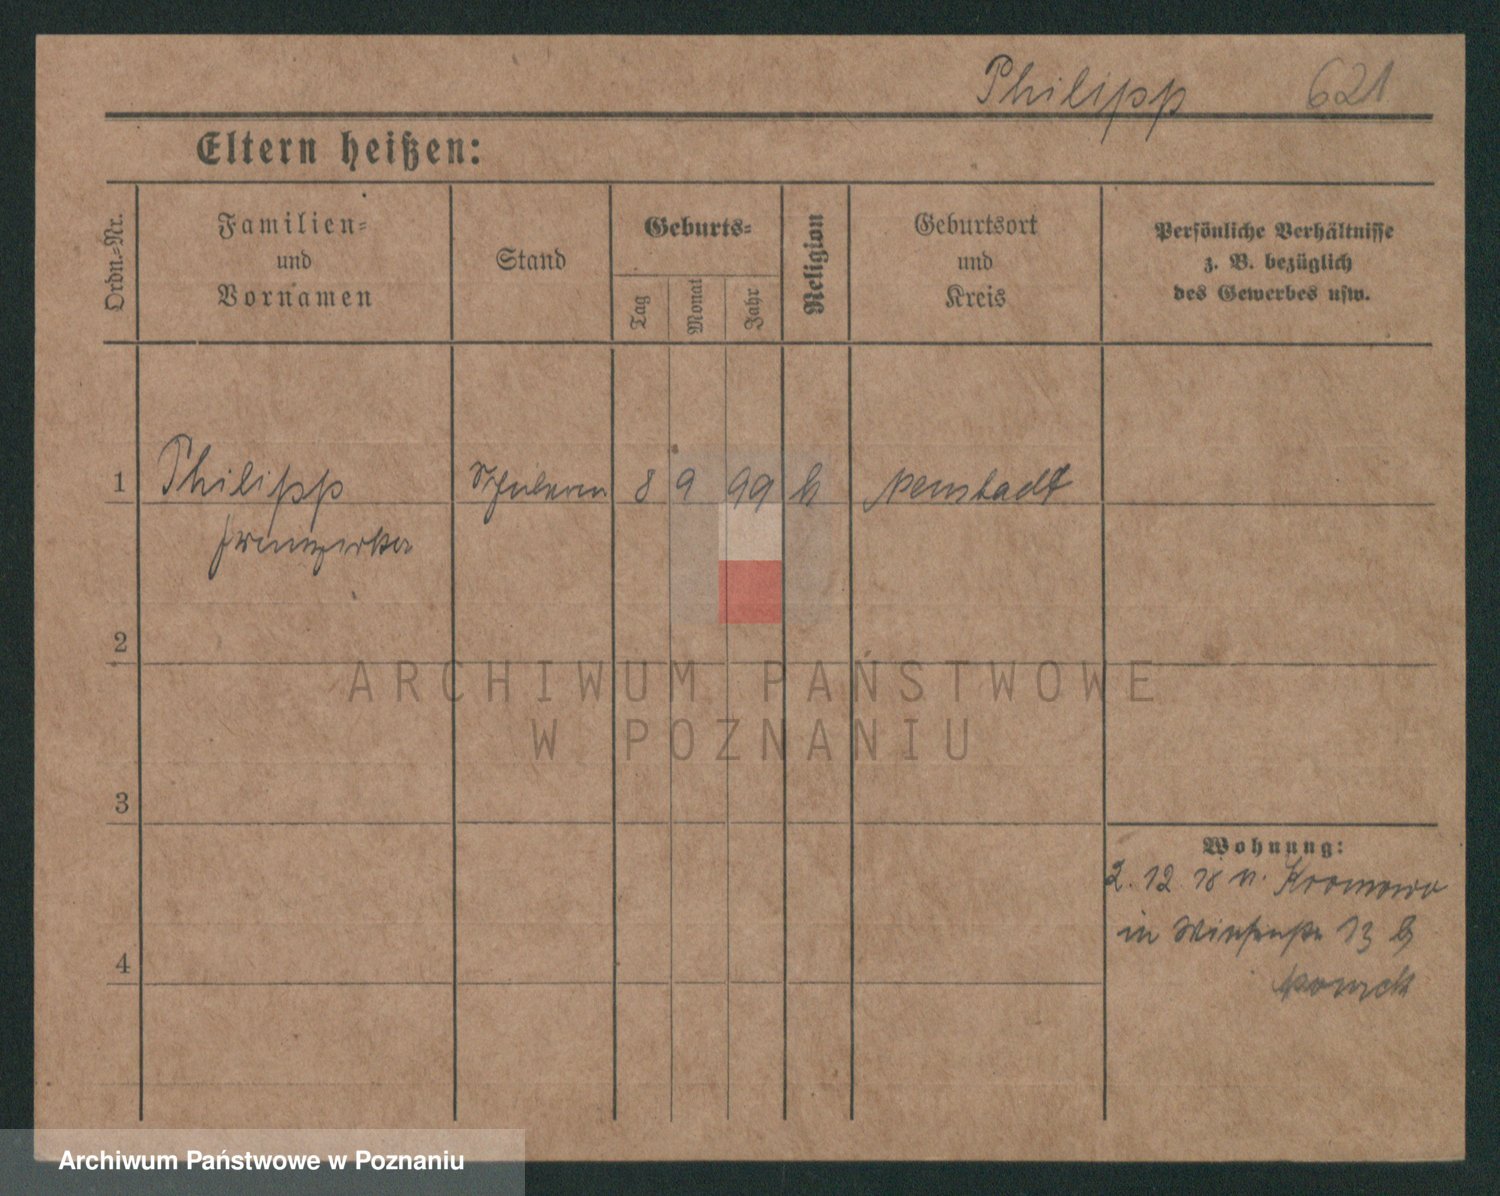 Philipp 621
Eltern heißen:
Ordn.-Nr.
Familien-
und
Vornamen
Stand
Geburts-
Tag
Monat
Jahr
Religion
Geburtsort
und
Kreis
Persönliche Verhältnisse
z. B. bezüglich
des Gewerbes usw.
1 Philipp 8 9 99 Neustadt
2
3
4
Wohnung:
2. 12 18 v.
in 13
ARCHIWUM PAŃSTWOWE
W POZNANIU
Archiwum Państwowe w Poznaniu